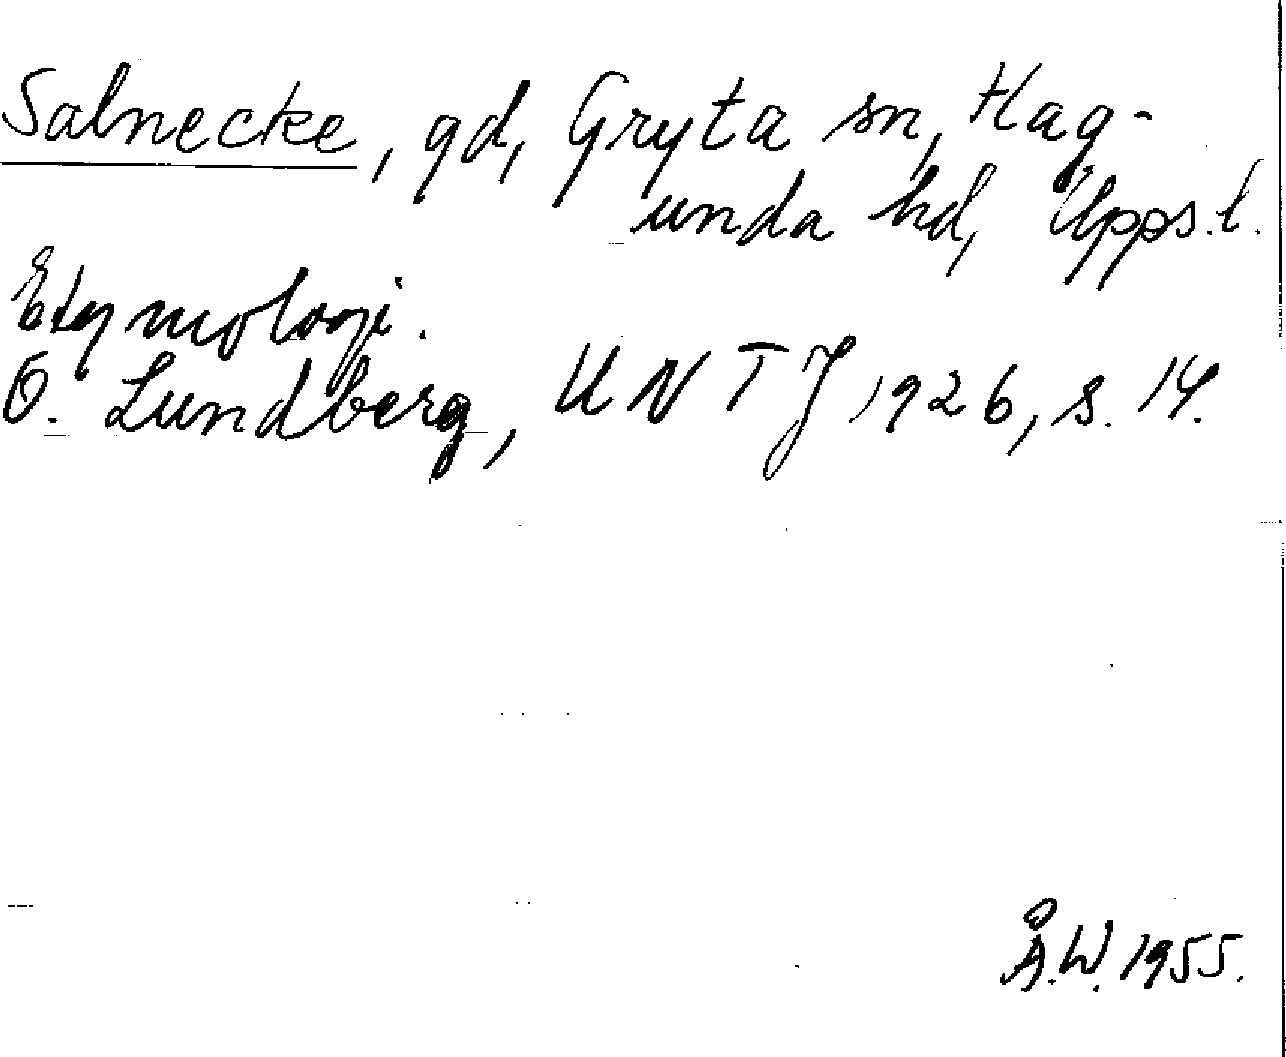 Salnecke, gd, Gryta sn, Hag-
unda hd, Upps.l.
Etymologi.
O. Lundberg, UNTJ 1926, s. 14.
Å.W. 1955.